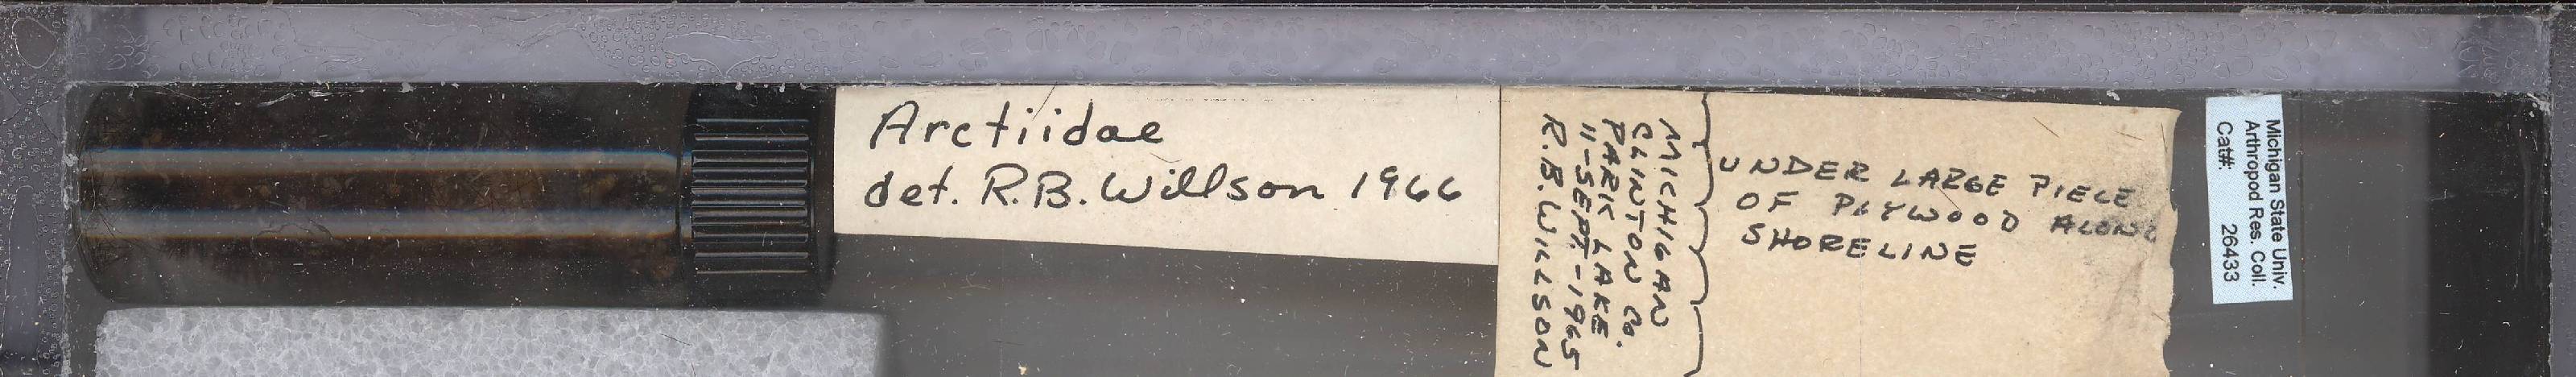 Arctiidae
det. R.B. Willson 1966
MICHIGAN
CLINTON Co.
PARK LAKE
11-SEPT-1965
R.B. WILLSON
UNDER LARGE PIECE
OF PLYWOOD ALONG
SHORELINE
Michigan State Univ.
Arthropod Res. Coll.
Cat#: 26433